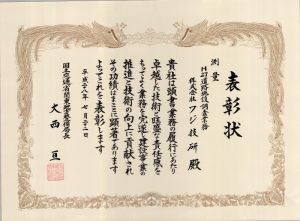 表彰状
測量
H27道路施設調査業務
株式会社フジ技研 殿
貴社は頭書業務の履行にあたり
卓越した技術と旺盛な責任感を
もってよく業務を完遂し建設事業の
推進と技術の向上に貢献され
その功績はまことに顕著であります
よってこれを表彰します
平成二十八年七月二十二日
国土交通省関東地方整備局長
大西 亘